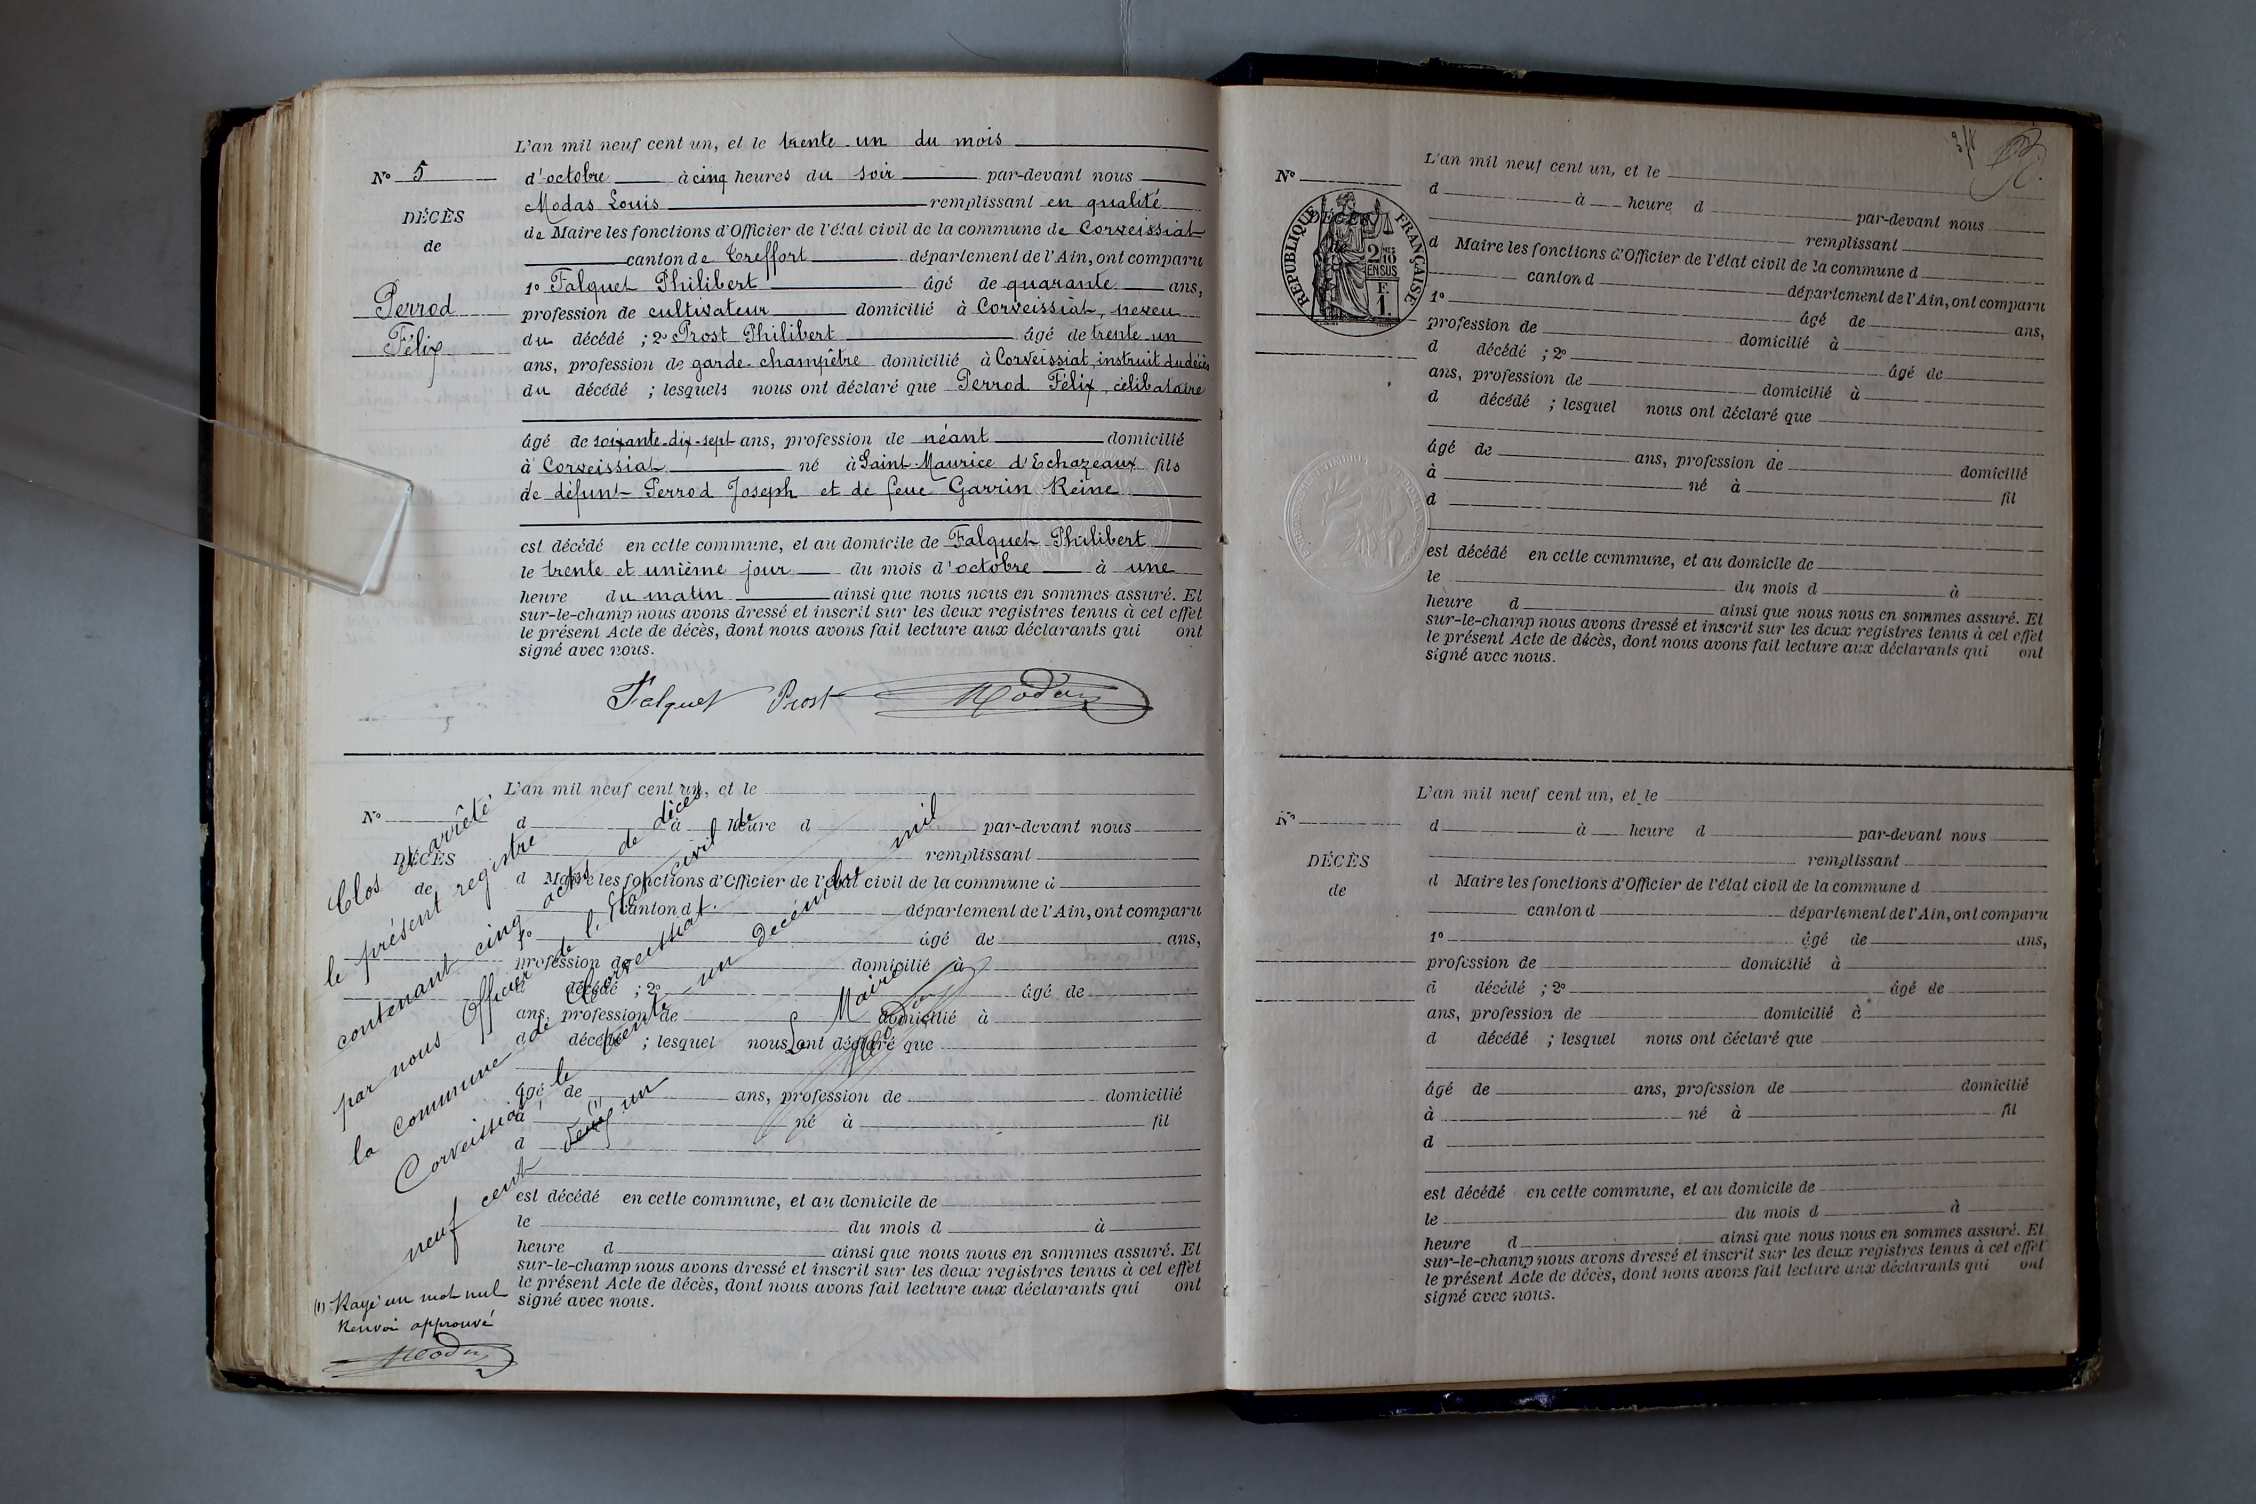 L'an mil neuf cent un, et le trente-un du mois
N° 5
d'octobre à cinq heures du soir par-devant nous
DÉCÈS
Modas Louis remplissant en qualité
de
de Maire les fonctions d'Officier de l'état civil de la commune de Corveissiat
canton de Treffort département de l'Ain, ont comparu
Perrod
1° Falquet Philibert âgé de quarante ans,
profession de cultivateur domicilié à Corveissiat, neveu
Félix
du décédé ; 2° Prost Philibert âgé de trente un
ans, profession de garde-champêtre domicilié à Corveissiat, instruit du décès
du décédé ; lesquels nous ont déclaré que Perrod Félix, célibataire
âgé de soixante-dix-sept ans, profession de néant domicilié
à Corveissiat né à Saint-Maurice d'Echazeaux fils
de défunt Perrod Joseph et de feue Garrin Reine
est décédé en cette commune, et au domicile de Falquet Philibert
le trente et unième jour du mois d'octobre à une
heure du matin ainsi que nous nous en sommes assuré. Et
sur-le-champ nous avons dressé et inscrit sur les deux registres tenus à cet effet
le présent Acte de décès, dont nous avons fait lecture aux déclarants qui ont
signé avec nous.
Falquet Prost Modas
L'an mil neuf cent un, et le
N°
d à heure d par-devant nous
DÉCÈS
remplissant
de
d Maire les fonctions d'Officier de l'état civil de la commune d
canton d département de l'Ain, ont comparu
1° âgé de ans,
profession de domicilié à
d décédé ; 2° âgé de
ans, profession de domicilié à
d décédé ; lesquel nous ont déclaré que
âgé de ans, profession de domicilié
à né à fil
d
est décédé en cette commune, et au domicile de
le du mois d à
heure d ainsi que nous nous en sommes assuré. Et
sur-le-champ nous avons dressé et inscrit sur les deux registres tenus à cet effet
le présent Acte de décès, dont nous avons fait lecture aux déclarants qui ont
signé avec nous.
Clos et arrêté
le présent registre
contenant cinq actes de décès
par nous Officier de l'état civil de
la commune de Corveissiat.
Corveissiat, le trente-un décembre mil
neuf cent (1) un
Le Maire
Modas
(1) Rayé un mot nul
Renvoi approuvé
Modas
L'an mil neuf cent un, et le
N°
d à heure d par-devant nous
DÉCÈS
RÉPUBLIQUE FRANÇAISE
2/10 EN SUS
F. 1.
remplissant
d Maire les fonctions d'Officier de l'état civil de la commune d
canton d département de l'Ain, ont comparu
1° âgé de ans,
profession de domicilié à
d décédé ; 2° âgé de
ans, profession de domicilié à
d décédé ; lesquel nous ont déclaré que
âgé de ans, profession de domicilié
à né à fil
d
est décédé en cette commune, et au domicile de
le du mois d à
heure d ainsi que nous nous en sommes assuré. Et
sur-le-champ nous avons dressé et inscrit sur les deux registres tenus à cet effet
le présent Acte de décès, dont nous avons fait lecture aux déclarants qui ont
signé avec nous.
L'an mil neuf cent un, et le
N°
d à heure d par-devant nous
DÉCÈS
remplissant
de
d Maire les fonctions d'Officier de l'état civil de la commune d
canton d département de l'Ain, ont comparu
1° âgé de ans,
profession de domicilié à
d décédé ; 2° âgé de
ans, profession de domicilié à
d décédé ; lesquel nous ont déclaré que
âgé de ans, profession de domicilié
à né à fil
d
est décédé en cette commune, et au domicile de
le du mois d à
heure d ainsi que nous nous en sommes assuré. Et
sur-le-champ nous avons dressé et inscrit sur les deux registres tenus à cet effet
le présent Acte de décès, dont nous avons fait lecture aux déclarants qui ont
signé avec nous.